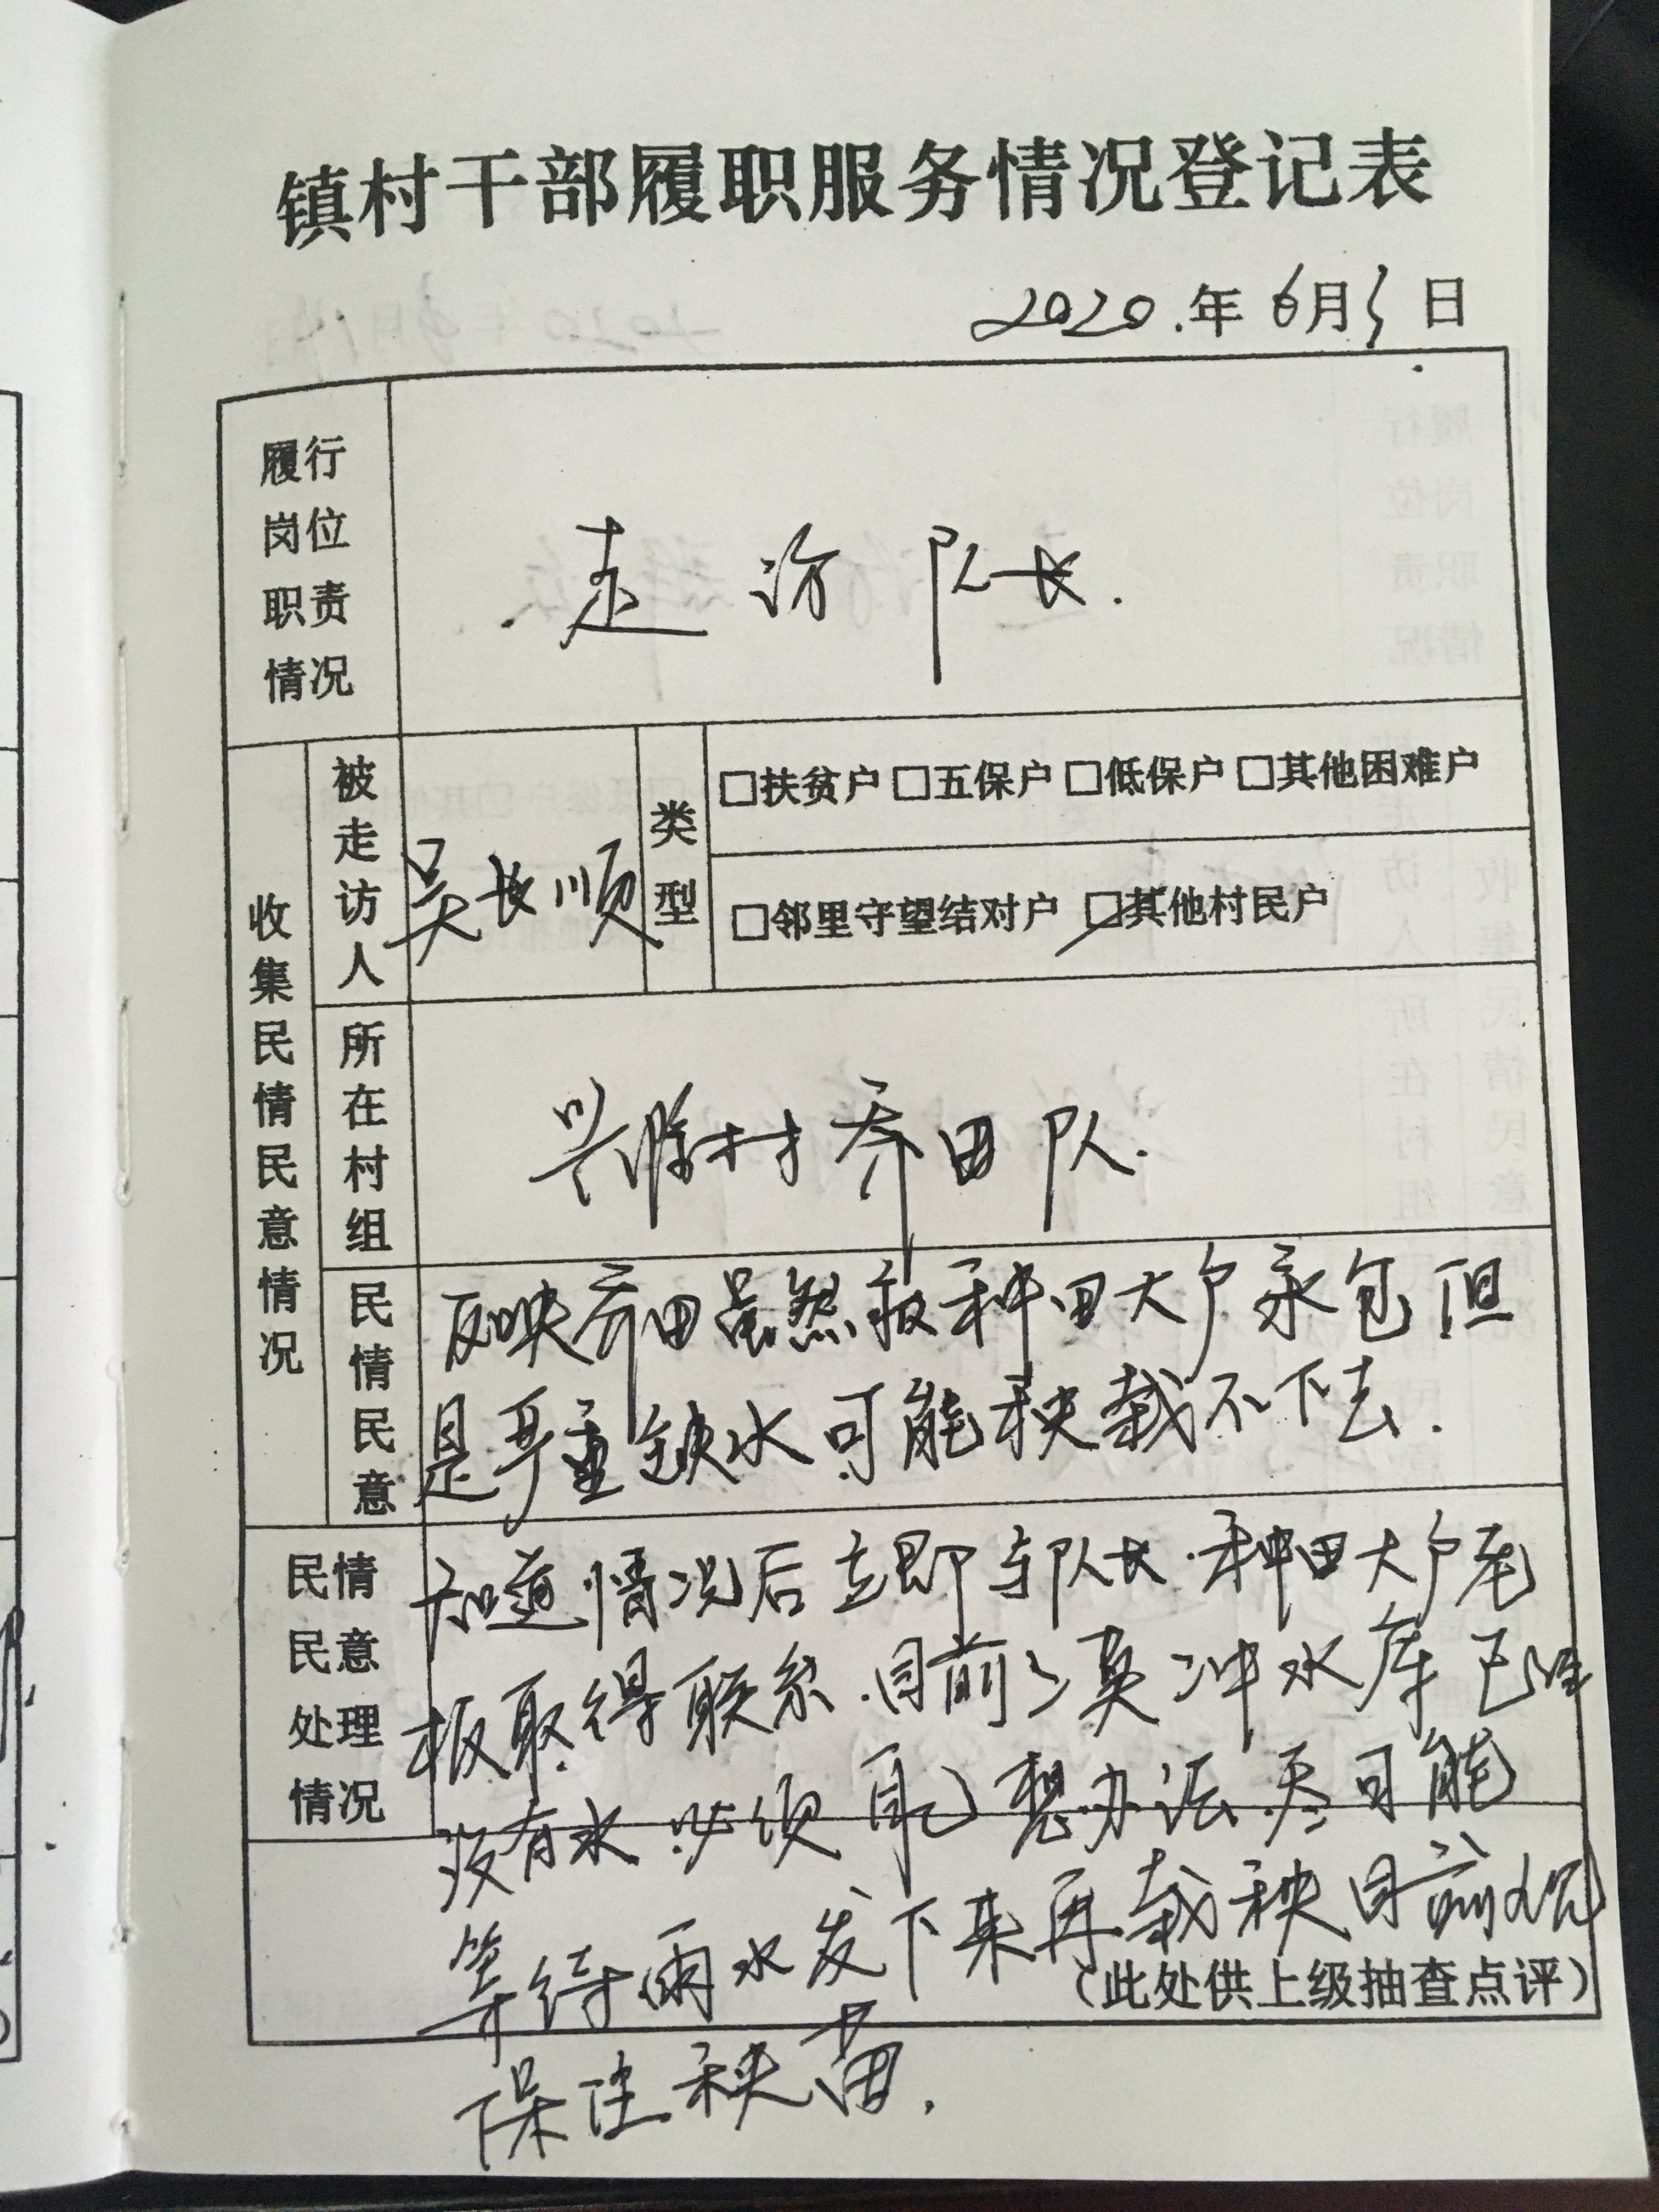 镇村干部履职服务情况登记表
2020.年6月 日
履行岗位职责情况
走访队长.
收集民情民意情况
被走访人
吴长顺
类型
□扶贫户 □五保户 □低保户 □其他困难户
□邻里守望结对户 ☑其他村民户
所在村组
兴隆村乔田队.
民情民意
反映乔田虽然被种田大户承包但
是严重缺水可能秧栽不下去.
民情民意处理情况
知道情况后立即与队长.种田大户
板取得联系.目前 莫冲水库已经
没有水.必须自己想办法.尽可能
等待雨水发下来再栽秧目前
保住秧苗.
(此处供上级抽查点评)